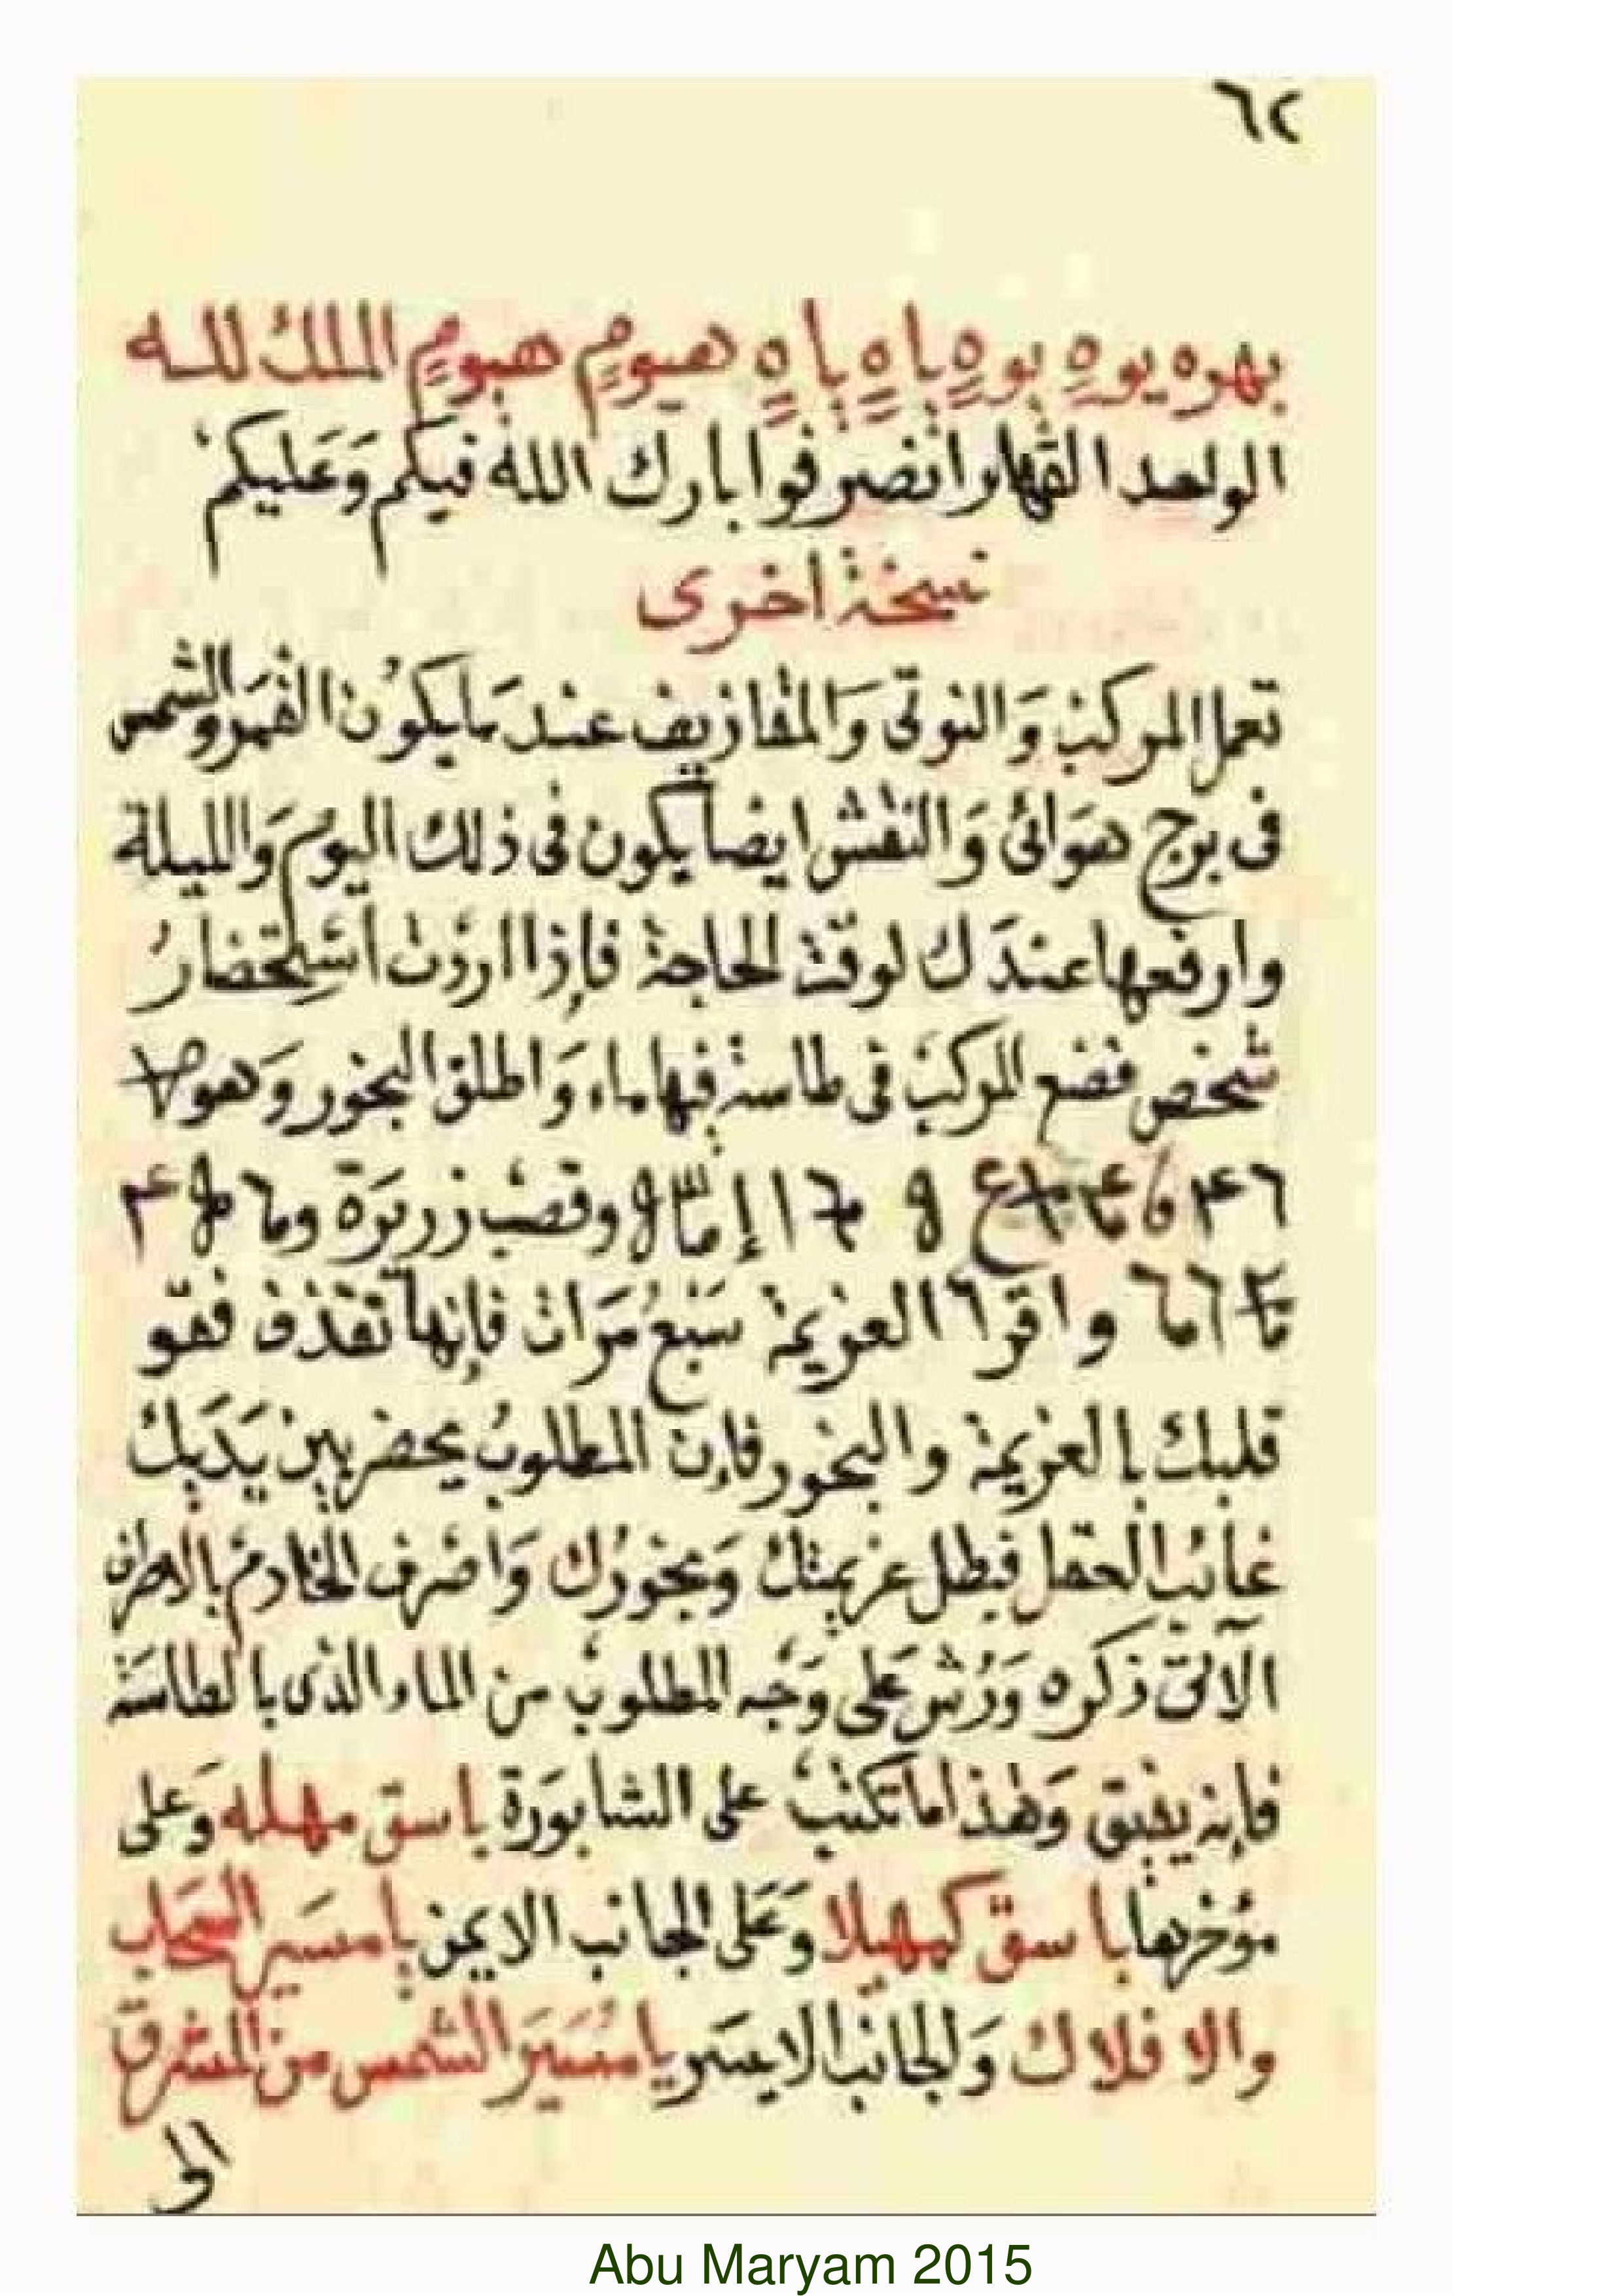 ٦٢
بهره يوهِ يوهٍ ياهٍ ياهٍ هيومٍ هيومٍ الملك لله
الواحد القهار انصرفوا بارك الله فيكم وَعليكم
نسخة اخرى
تعمل المركب وَالنوتى وَالمقازيف عند مَا يكوُن القمر والشمس
فى برج هوَائى وَالنقش ايضا يكون فى ذلك اليوم وَالليلة
وارفعها عندَك لوقت الحاجة فإذا اردت استحضارُ
شخص فضع المركب فى طاسة فيها ماء وَاطلق البخور وَهو
وقصب زريرَة
واقرا العزيمة سَبع مَرات فإنها تقذف فقو
قلبك بالعزيمة والبخور فإن المطلوبُ يحضر بين يَدَيك
غائب العقل فبطل عزيمتك وَبخورُك وَاصرف الخادم
الآتى ذكره وَرُش عَلى وَجْه المطلوب من الماء الذى بالطاسَة
فإنه يفيق وَهذا ما تكتب على الشابورَة باسق مهله وَعلى
مؤخرها باسق كهيلا وَعَلى الجانب الايمن يا مسَير السحَاب
والافلاك وَالجانب الايسَر يا مُسَيرَ الشمس من المشرق
الى
Abu Maryam 2015